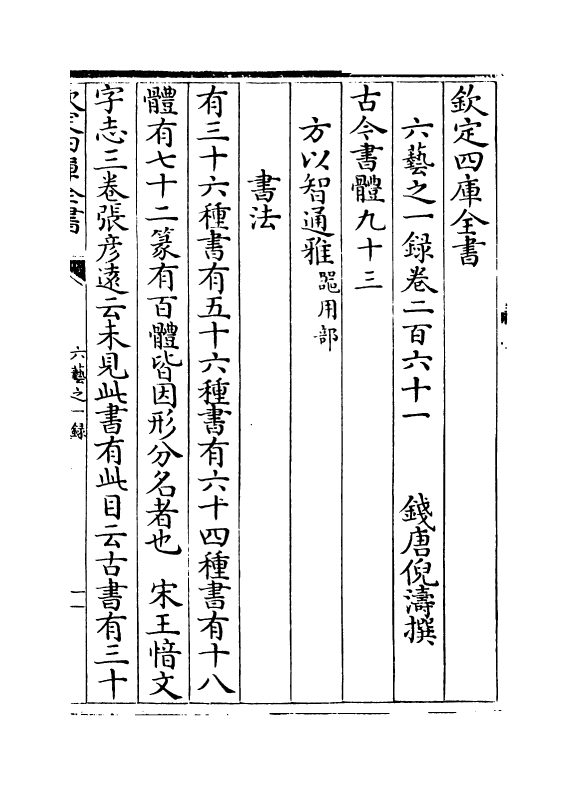 欽定四庫全書
六藝之一録卷二百六十一　　錢唐倪濤撰
古今書體九十三
方以智通雅器用部
書法
有三十六種書有五十六種書有六十四種書有十八
體有七十二篆有百體皆因形分名者也　宋王愔文
字志三卷張彦遠云未見此書有此目云古書有三十
欽定四庫全書
六藝之一録
一